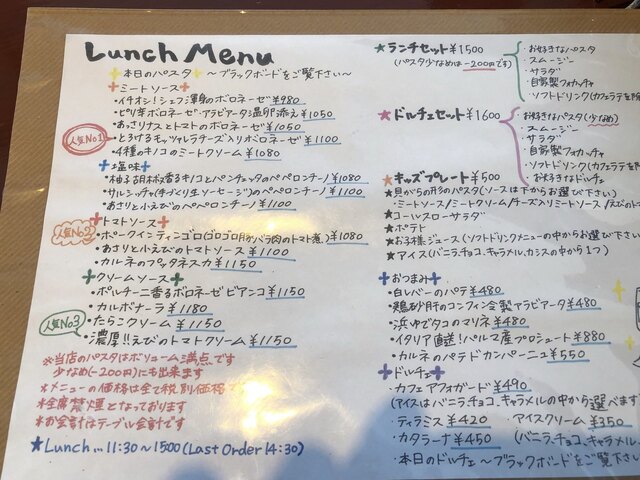 Lunch Menu
本日のパスタ ～ブラックボードをご覧下さい～
ミートソース
・イチオシ!シェフ渾身のボロネーゼ ¥980
・ピリ辛ボロネーゼ アラビアータ温卵添え ¥1050
・あっさりナスとトマトのボロネーゼ ¥1050
人気No1
・とろけるモッツァレラチーズ入りボロネーゼ ¥1100
・4種のキノコのミートクリーム ¥1080
塩味
・柚子胡椒香るキノコとパンチェッタのペペロンチーノ ¥1080
・サルシッチャ(手づくり生ソーセージ)のペペロンチーノ ¥1100
・あさりと小えびのペペロンチーノ ¥1100
トマトソース
人気No2
・ポークインティンゴロ(ゴロゴロ豚バラ肉のトマト煮) ¥1080
・あさりと小えびのトマトソース ¥1100
・カルネのプッタネスカ ¥1150
クリームソース
・ポルチーニ香るボロネーゼ ビアンコ ¥1150
・カルボナーラ ¥1180
人気No3
・たらこクリーム ¥1150
・濃厚!えびのトマトクリーム ¥1150
※当店のパスタはボリューム満点です
少なめ(-200円)にも出来ます
*メニューの価格は全て税別価格で
*全席禁煙となっております
*お会計はテーブル会計です
★Lunch … 11:30～1500 (Last Order 14:30)
★ランチセット ¥1500
(パスタ少なめは-200円です)
・お好きなパスタ
・スムージー
・サラダ
・自家製フォカッチャ
・ソフトドリンク(カフェラテを除
★ドルチェセット ¥1600
・お好きなパスタ(少なめ)
・スムージー
・サラダ
・自家製フォカッチャ
・ソフトドリンク(カフェラテを
・お好きなドルチェ
★キッズプレート ¥500
★貝がらの形のパスタ(ソースは下からお選び下さい)
・ミートソース/ミートクリーム/チーズ入りミートソース/えびのト
★コールスローサラダ
★ポテト
★お子様ジュース(ソフトドリンクメニューの中からお選び下さい
★アイス(バニラ、チョコ、キャラメル、カシスの中から1つ)
おつまみ
・白レバーのパテ ¥480
・鶏砂肝のコンフィ 全製アラビアータ ¥480
・浜ゆでタコのマリネ ¥480
・イタリア直送!パルマ産プロシュート ¥880
・カルネのパテドカンパーニュ ¥550
ドルチェ
・カフェアフォガード ¥490
(アイスはバニラ、チョコ、キャラメルの中から選べます
・ティラミス ¥420 ・アイスクリーム ¥350
・カタラーナ ¥450 (バニラ、チョコ、キャラメル、
・本日のドルチェ～ブラックボードをご覧下さい